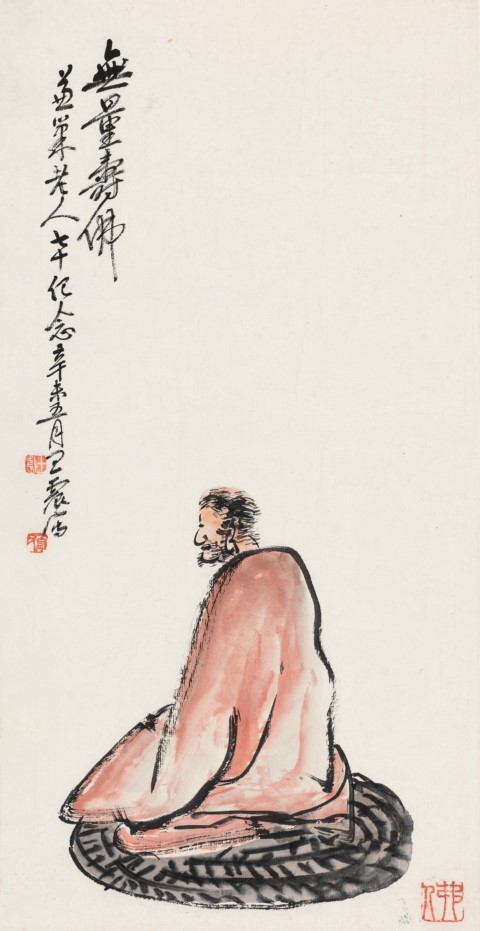 無量壽佛
兼巢老人七十紀念辛未五月王震寫